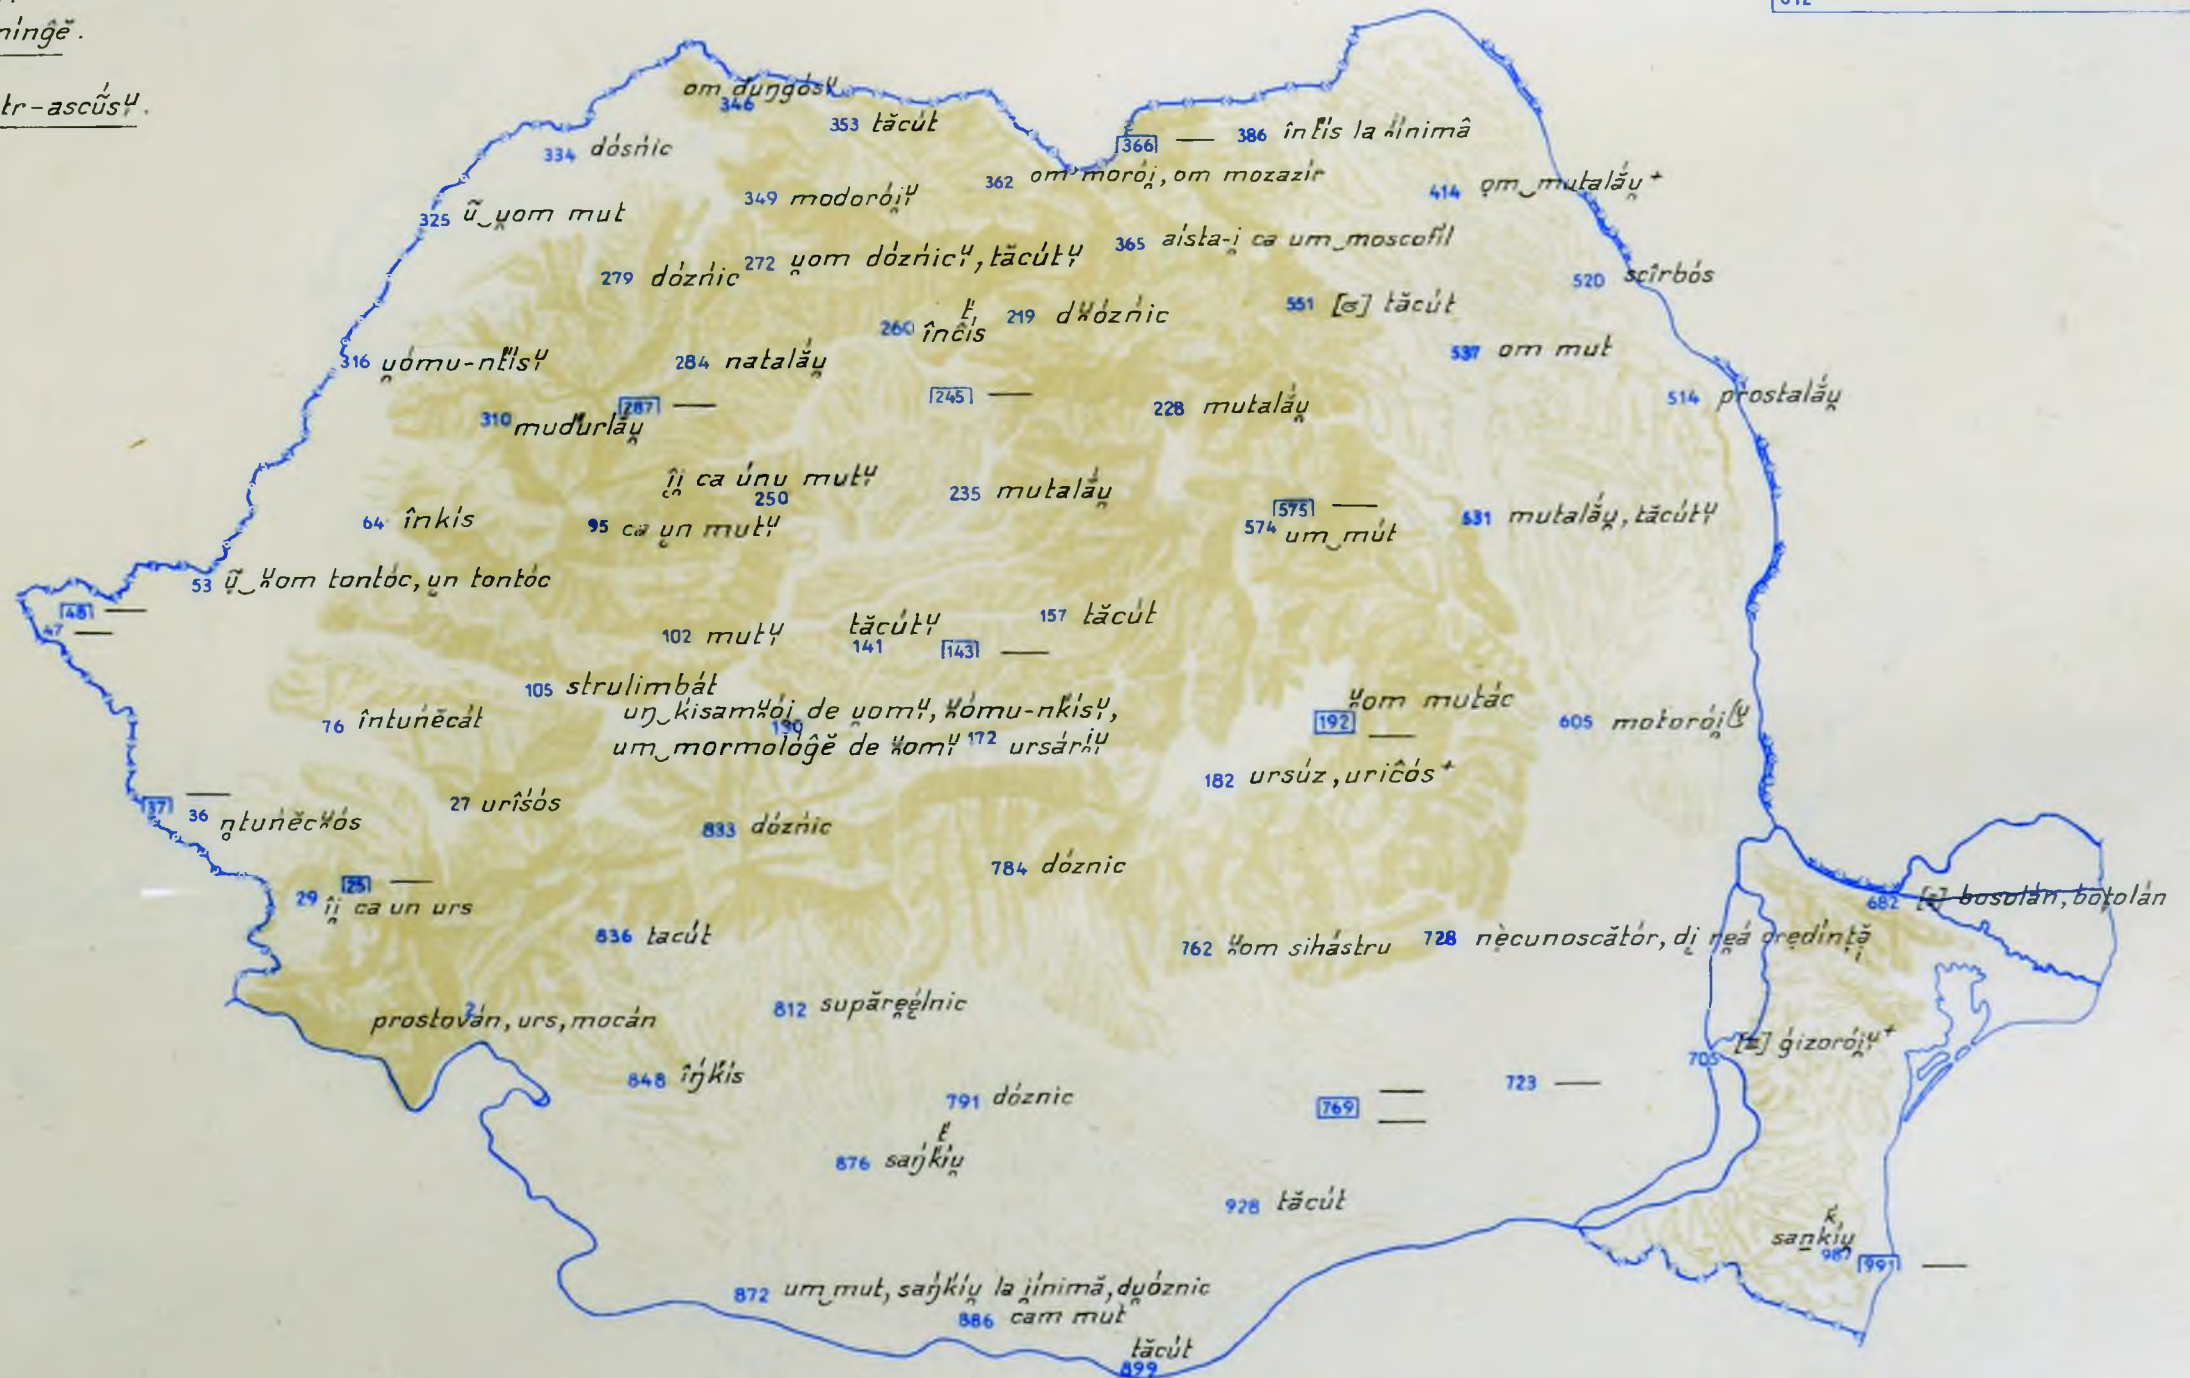 ningĕ.
tr-ascṹsᶙ.
812
om duŋgósᶙ
346
353 tăcút
334 dósńic
366 —
386 întis la inimâ
349 modorói̯ᶙ
362 om morói̯, om mozazír
414 o̯m‿mutalắu̯+
325 ũ‿u̯om mut
272 u̯om dózńicᶙ, tăcútᶙ
365 aísta-i̯ ca um‿moscofíl
279 dózńic
520 scîrbós
260 încís
219 dᵘ̯óznic
551 [σ] tăcút
316 u̯ómu-ntísᶙ
284 natalắu̯
537 om mut
287 —
245 —
228 mutalắu̯
514 prostalắu̯
310 mudurlắu̯
îi̯ ca únu mutᶙ
250
235 mutalắu̯
64 înkís
95 ca un mutᶙ
575 —
574 um‿mút
531 mutalắu̯, tăcútᶙ
53 ũ‿ᵘ̯om tontóc, un tontóc
48 —
47 —
102 mutᶙ
tăcútᶙ
141
143 —
157 tăcút
105 strulimbát
76 întuńĕcát
uŋ‿kisamᵘ̯ói̯ de u̯omᶙ, ᵘ̯ómu-nkísᶙ,
130
um‿mormológĕ de ᵘ̯omᶙ
172 ursáriᶙ
ᵘ̯om mutác
192 —
605 motorói̯(ᶙ
182 ursúz, uricós+
37 —
36 n̥tuńĕcᵘ̯ós
27 urîśós
833 dózńic
784 dóznic
25 —
29 îi̯ ca un urs
682 [σ] bosolán, botolán
836 tacút
762 ᵘ̯om sihástru
728 nẹcunoscătór, di̯ ne̯á crẹdínță
2
prostován, urs, mocán
812 supăre̯élnic
705 [σ] ǵizorói̯ᶙ+
848 îŋkís
791 dóznic
769 —
—
723 —
876 saŋkíu̯
928 tăcút
sankíu̯
987
991 —
872 um‿mut, saŋkíu̯ la i̯ínimă, du̯óznic
886 cam mut
tăcút
899